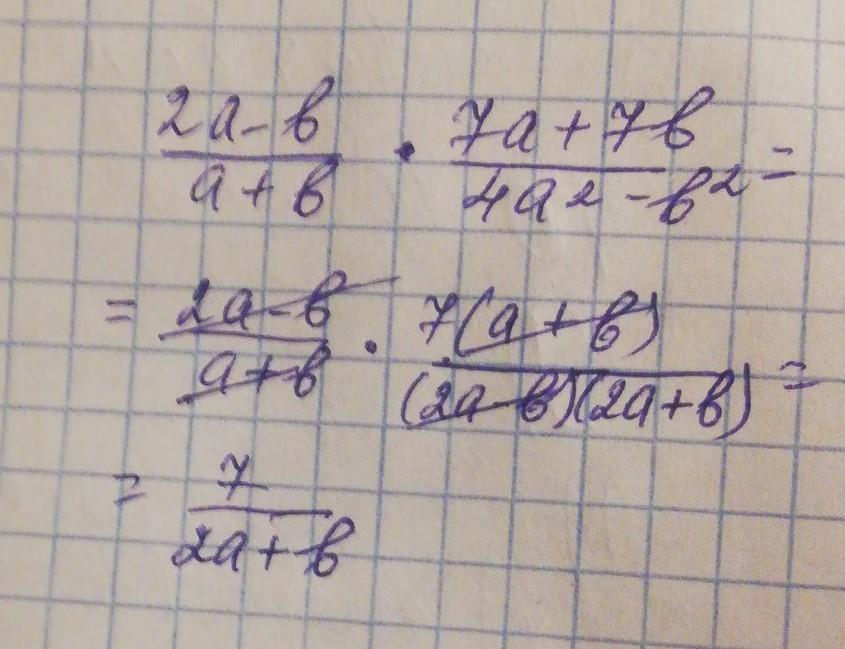 (2a-b)/(a+b) · (7a+7b)/(4a²-b²) =
= (2a-b)/(a+b) · 7(a+b)/((2a-b)(2a+b)) =
= 7/(2a+b)